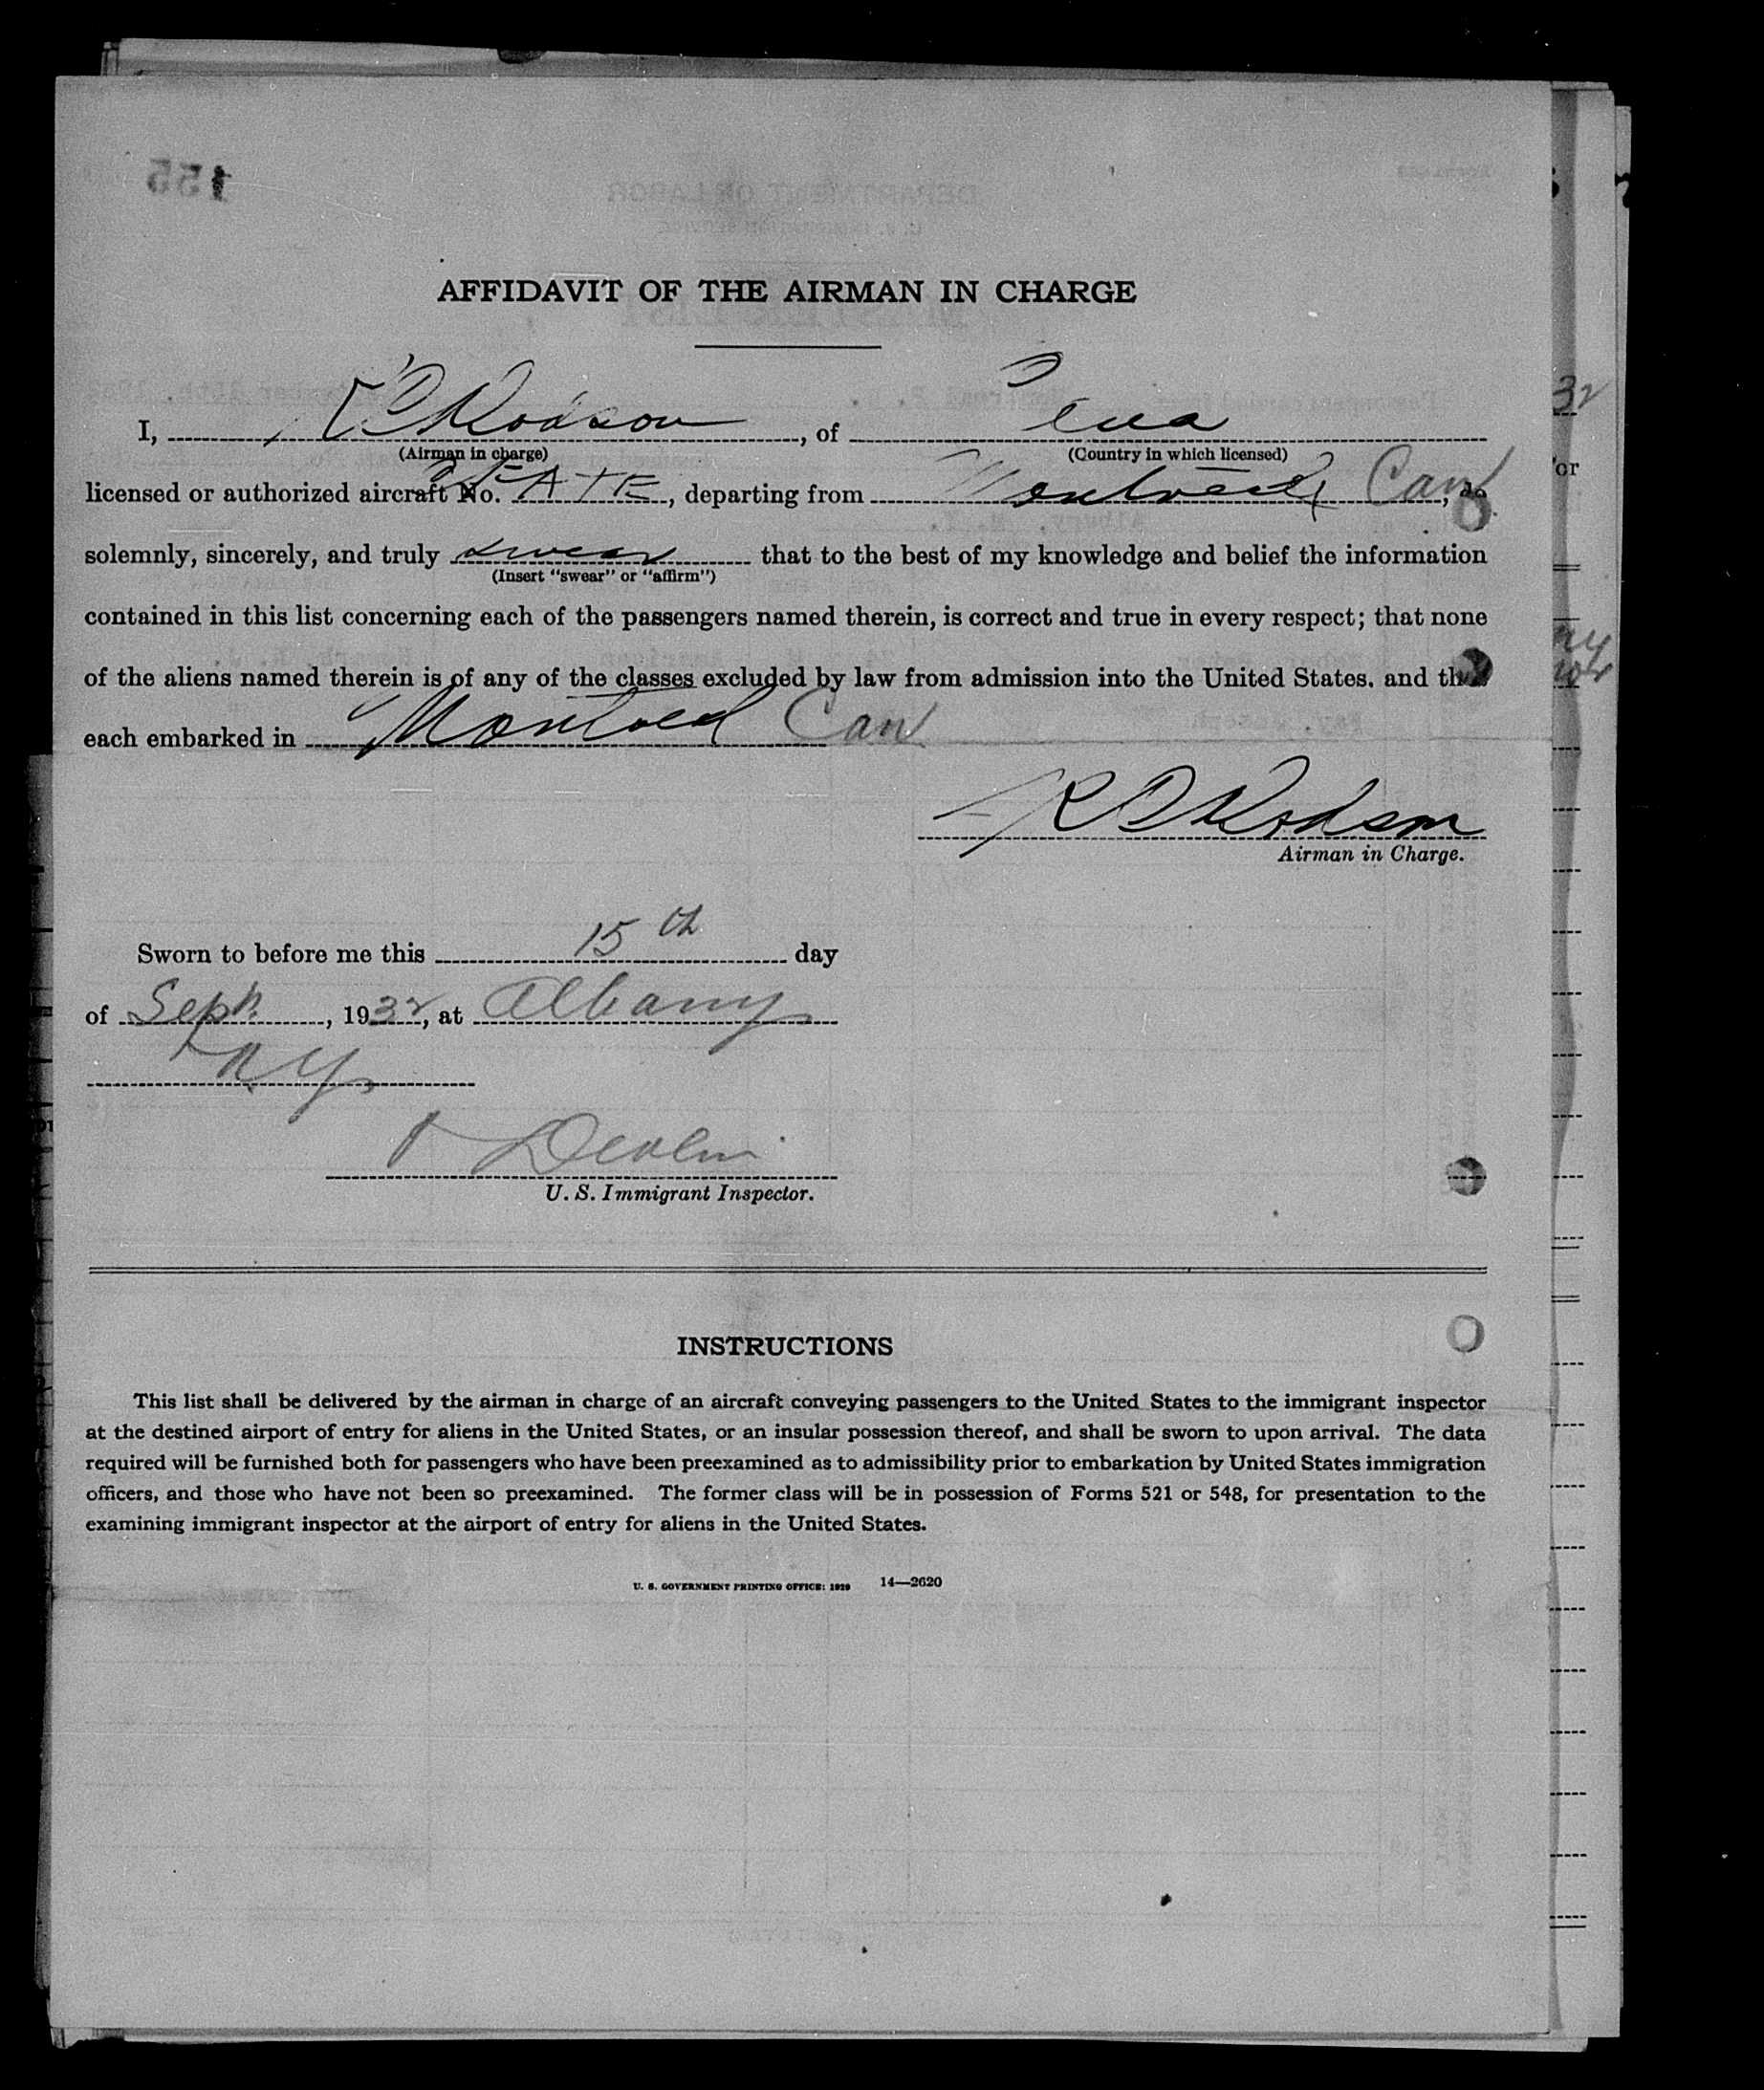 AFFIDAVIT OF THE AIRMAN IN CHARGE
I, R D Dodson, of
(Airman in charge) (Country in which licensed)
licensed or authorized aircraft No. , departing from Montreal Can, do
solemnly, sincerely, and truly swear that to the best of my knowledge and belief the information
(Insert "swear" or "affirm")
contained in this list concerning each of the passengers named therein, is correct and true in every respect; that none
of the aliens named therein is of any of the classes excluded by law from admission into the United States, and that
each embarked in Montreal Can
Airman in Charge.
Sworn to before me this 15th day
of Sept., 1932, at Albany
N.Y.
Devlin
U. S. Immigrant Inspector.
INSTRUCTIONS
This list shall be delivered by the airman in charge of an aircraft conveying passengers to the United States to the immigrant inspector
at the destined airport of entry for aliens in the United States, or an insular possession thereof, and shall be sworn to upon arrival. The data
required will be furnished both for passengers who have been preexamined as to admissibility prior to embarkation by United States immigration
officers, and those who have not been so preexamined. The former class will be in possession of Forms 521 or 548, for presentation to the
examining immigrant inspector at the airport of entry for aliens in the United States.
U. S. GOVERNMENT PRINTING OFFICE: 1929 14—2620